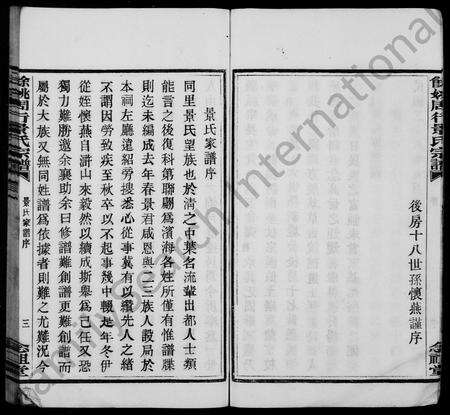 後房十八世孫懷燕謹序
餘姚周行景氏宗譜
景氏家譜序
同里景氏望族也於淸之中葉名流輩出都人士類
能言之後復科第聯翩爲濱海各姓所僅有惟譜牒
則迄未編成去年春景君咸恩與二三族人設局於
本祠左廳遠紹旁搜悉心從事冀有以繼先人之緒
不謂因勞致疾至秋卒以不起事幾中輟是年冬伊
從姪懷燕自滸山來毅然以續成斯舉爲己任又恐
獨力難勝邀余襄助余曰修譜難創譜更難創譜而
屬於大族又無同姓譜爲依據者則難之尤難況今
餘姚周行景氏宗譜
景氏家譜序
三
念祖堂
FamilySearch International